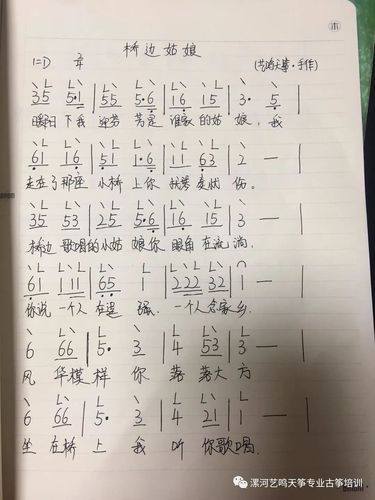 木
桥边姑娘
1=D 2/4 (艺鸣天筝·手作)
35 5·1 | 55 5·6 | 16 15 | 3· 5 |
暖阳下我迎芬芳是谁家的姑娘,我
61 16 | 51 1·6 | 11 63 | 2 — |
走在了那座小桥上你抚琴奏忧伤。
35 53 | 25 5·6 | 16 15 | 3 — |
桥边歌唱的小姑娘你眼角在流淌,
61 111 | 65 1 | 222 32 | 1 — |
你说一个人在逞强,一个人念家乡。
6 66 | 5· 3 | 4 53 | 3 — |
风华模样你落落大方
6 66 | 5· 3 | 4 21 | 1 — |
坐在桥上我听你歌唱
漯河艺鸣天筝专业古筝培训